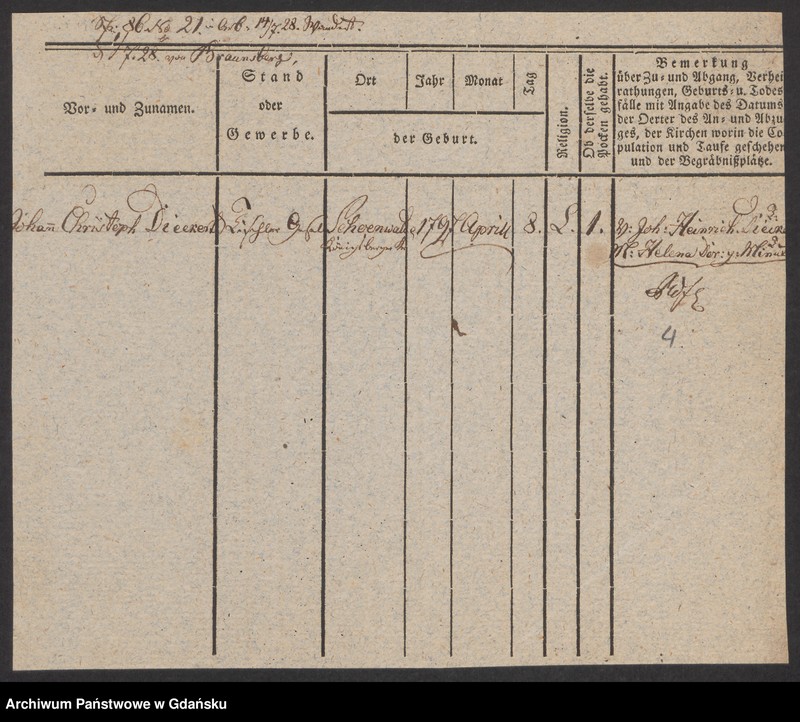 86 No 21. 14/7.28.
7.28. von Braunsberg,
Vor- und Zunamen.
Stand
oder
Gewerbe.
Ort
Jahr
Monat
Tag
der Geburt.
Religion.
Ob derselbe die
Pocken gehabt.
Bemerkung
über Zu- und Abgang, Verhei
rathungen, Geburts- u. Todes
fälle mit Angabe des Datums
der Oerter des An- und Abzu
ges, der Kirchen worin die Co
pulation und Taufe geschehen
und der Begräbnißplätze.
Johann Christoph Dieckert
Tischler Gesel
Schoenwalde
1797
Aprill
8.
L.
1.
V: Joh: Heinrich Diecke
M: Helena Dor:
4
Archiwum Państwowe w Gdańsku